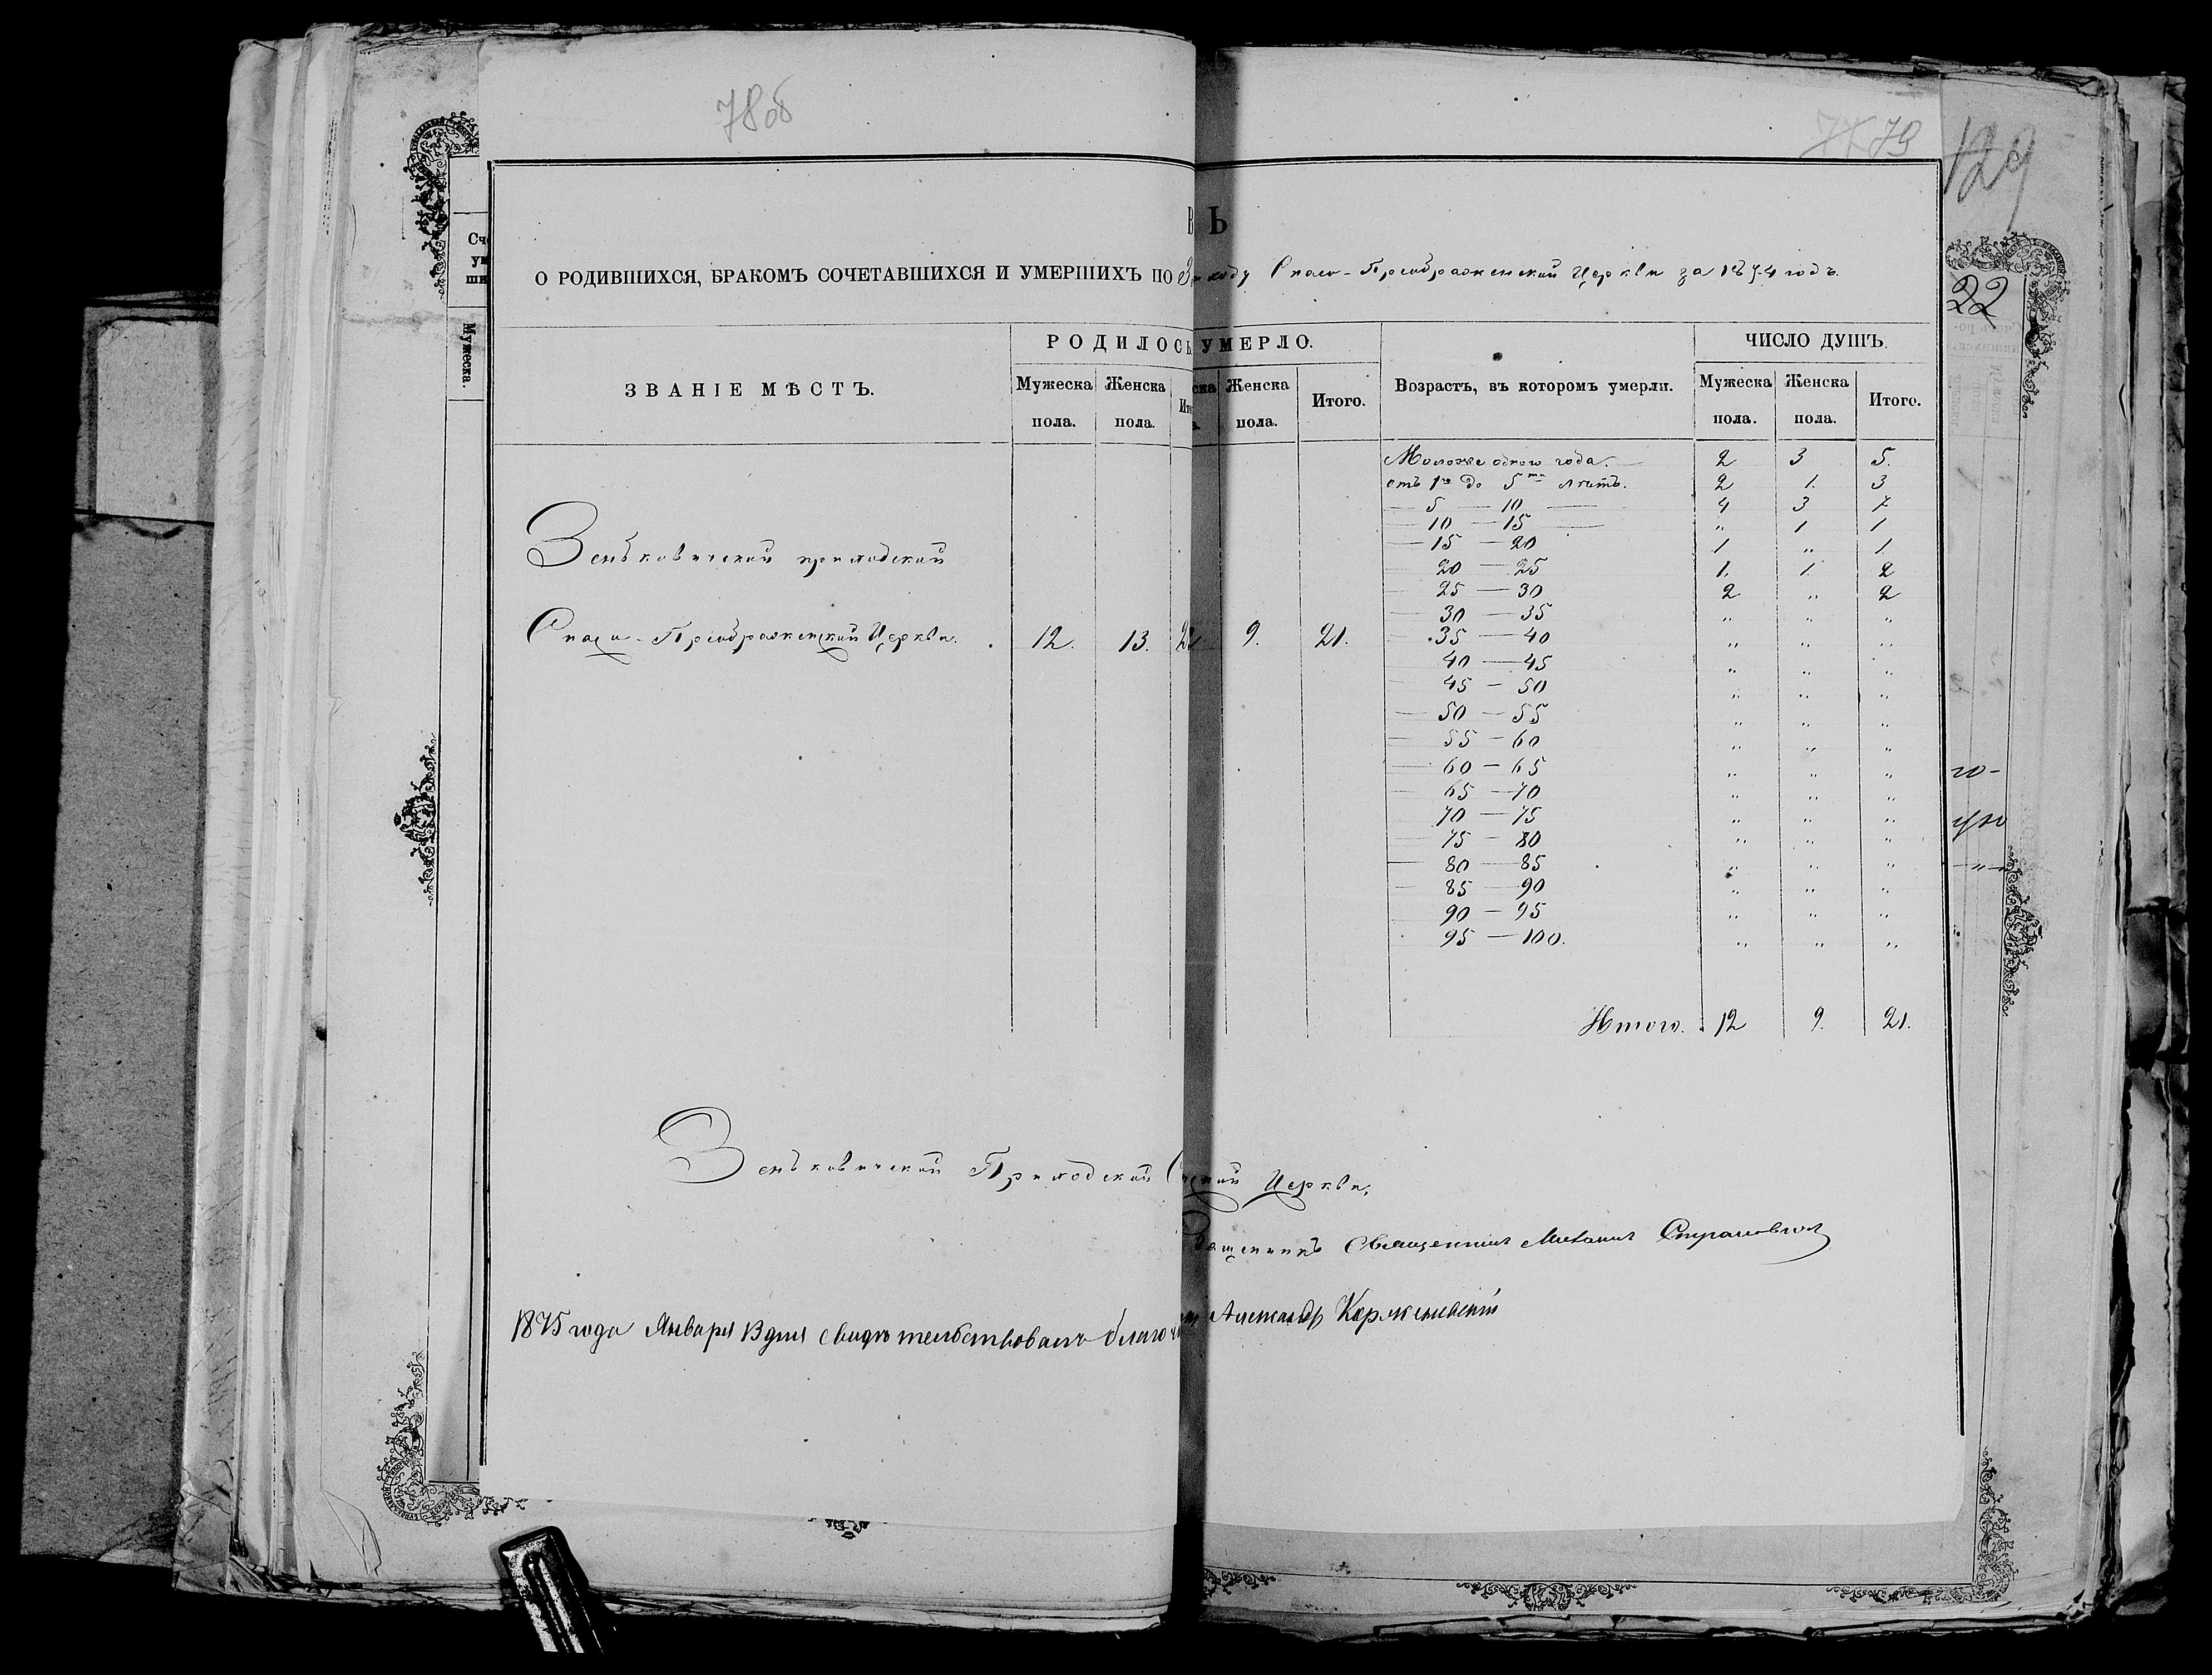 78 об
77 79
129
22
В Ь
О РОДИВШИХСЯ, БРАКОМЪ СОЧЕТАВШИХСЯ И УМЕРШИХЪ ПО З ходу Спасо-Преображенской Церкви за 1874 годъ.
ЗВАНІЕ МѢСТЪ.
РОДИЛОСЬ
УМЕРЛО.
Возрастъ, въ которомъ умерли.
ЧИСЛО ДУШЪ.
Мужеска пола.
Женска пола.
Ито
ска
Женска пола.
Итого.
Мужеска пола.
Женска пола.
Итого.
Зенъковичской приходской
Спасо-Преображенской Церкви. 12. 13. 9. 21.
Моложе одного года. 2 3 5.
отъ 1го до 5ти лѣтъ. 2 1. 3
— 5 — 10 — 4 3 7
— 10 — 15 — „ 1 1
— 15 — 20 1 „ 1.
— 20 — 25 1. 1. 2
— 25 — 30 2 „ 2
— 30 — 35 „ „ „
— 35 — 40 „ „ „
— 40 — 45 „ „ „
— 45 — 50 „ „ „
— 50 — 55 „ „ „
— 55 — 60 „ „ „
— 60 — 65 „ „ „
— 65 — 70 „ „ „
— 70 — 75 „ „ „
— 75 — 80 „ „ „
— 80 — 85 „ „ „
— 85 — 90 „ „ „
— 90 — 95 „ „ „
95 — 100. „ „ „
Итого. 12 9. 21.
Зенъковичской Приходской С ской Церкви,
Священникъ Михаилъ
1875 года Января 13 дня свидѣтельствовалъ благо Александр
Мужеска.